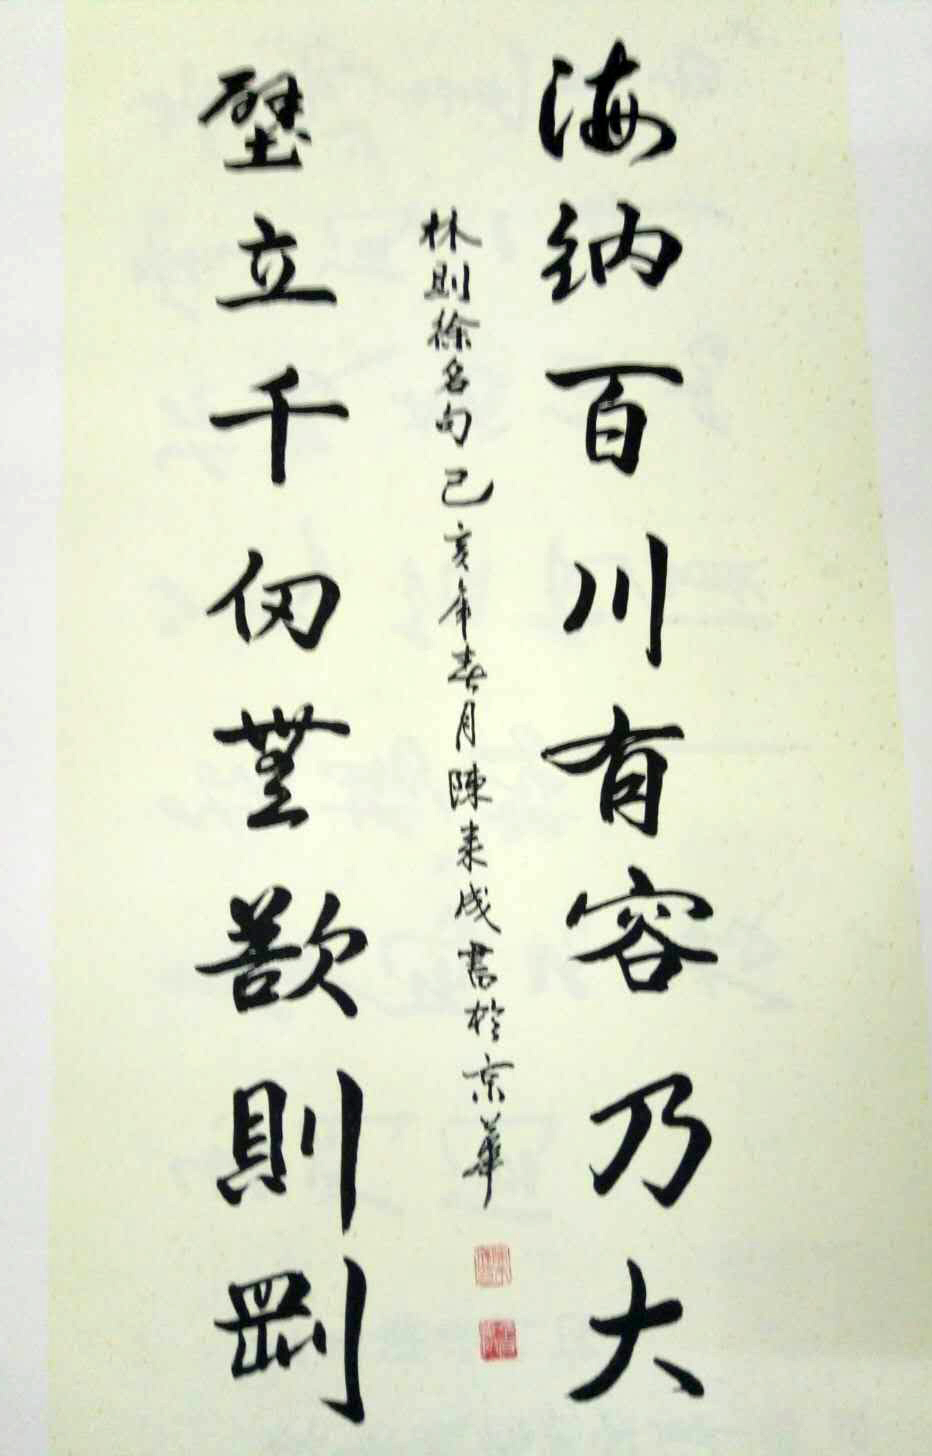 海納百川有容乃大
壁立千仞無欲則剛
林則徐名句己亥年春月陳来成書於京華